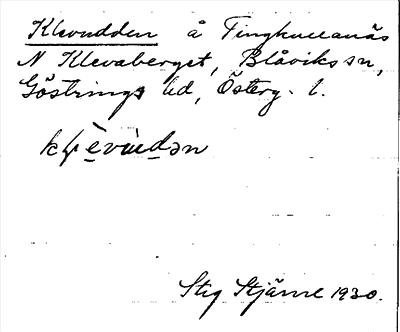 Klevudden å Tingkullanäs
N Klevaberget, Blåviks sn,
Göstrings hd, Österg. l.
Stig Stjärne 1930.